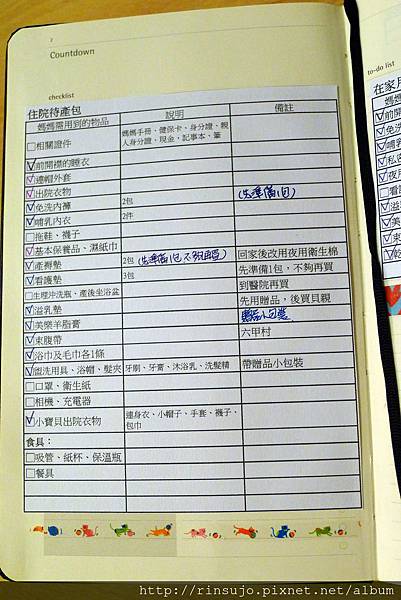 2
Countdown
checklist
住院待產包
媽媽需用到的物品 說明 備註
□相關證件 媽媽手冊、健保卡、身分證、親人身分證、現金、記事本、筆
☑前開襟的睡衣
☑連帽外套
☑出院衣物 (先準備1包)
☑免洗內褲 2包
☑哺乳內衣 2件
□拖鞋、襪子
☑基本保養品、濕紙巾
☑產褥墊 2包 (先準備1包 不夠再買) 回家後改用夜用衛生棉
☑看護墊 3包 先準備1包，不夠再買
□生理沖洗瓶、產後坐浴盆 到醫院再買
☑溢乳墊 先用贈品，後買貝親
☑美樂羊脂膏
☑束腹帶 六甲村
☑浴巾及毛巾各1條
☑盥洗用具、浴帽、髮夾 牙刷、牙膏、沐浴乳、洗髮精 帶贈品小包裝
□口罩、衛生紙
□相機、充電器
☑小寶貝出院衣物 連身衣、小帽子、手套、襪子、包巾
食具：
□吸管、紙杯、保溫瓶
□餐具
to-do list
在家用
http://rinsujo.pixnet.net/album